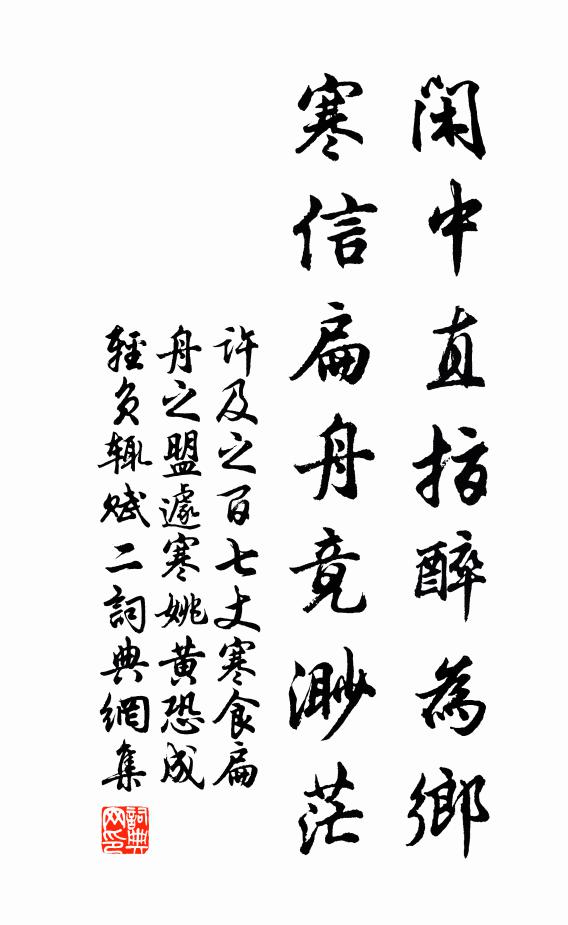 閑中直指醉為鄉
寒信扁舟竟渺茫
许及之百七丈寒食扁
舟之盟遽寒姚黄恐成
輕負辄赋二詞典網集
詞典
网印